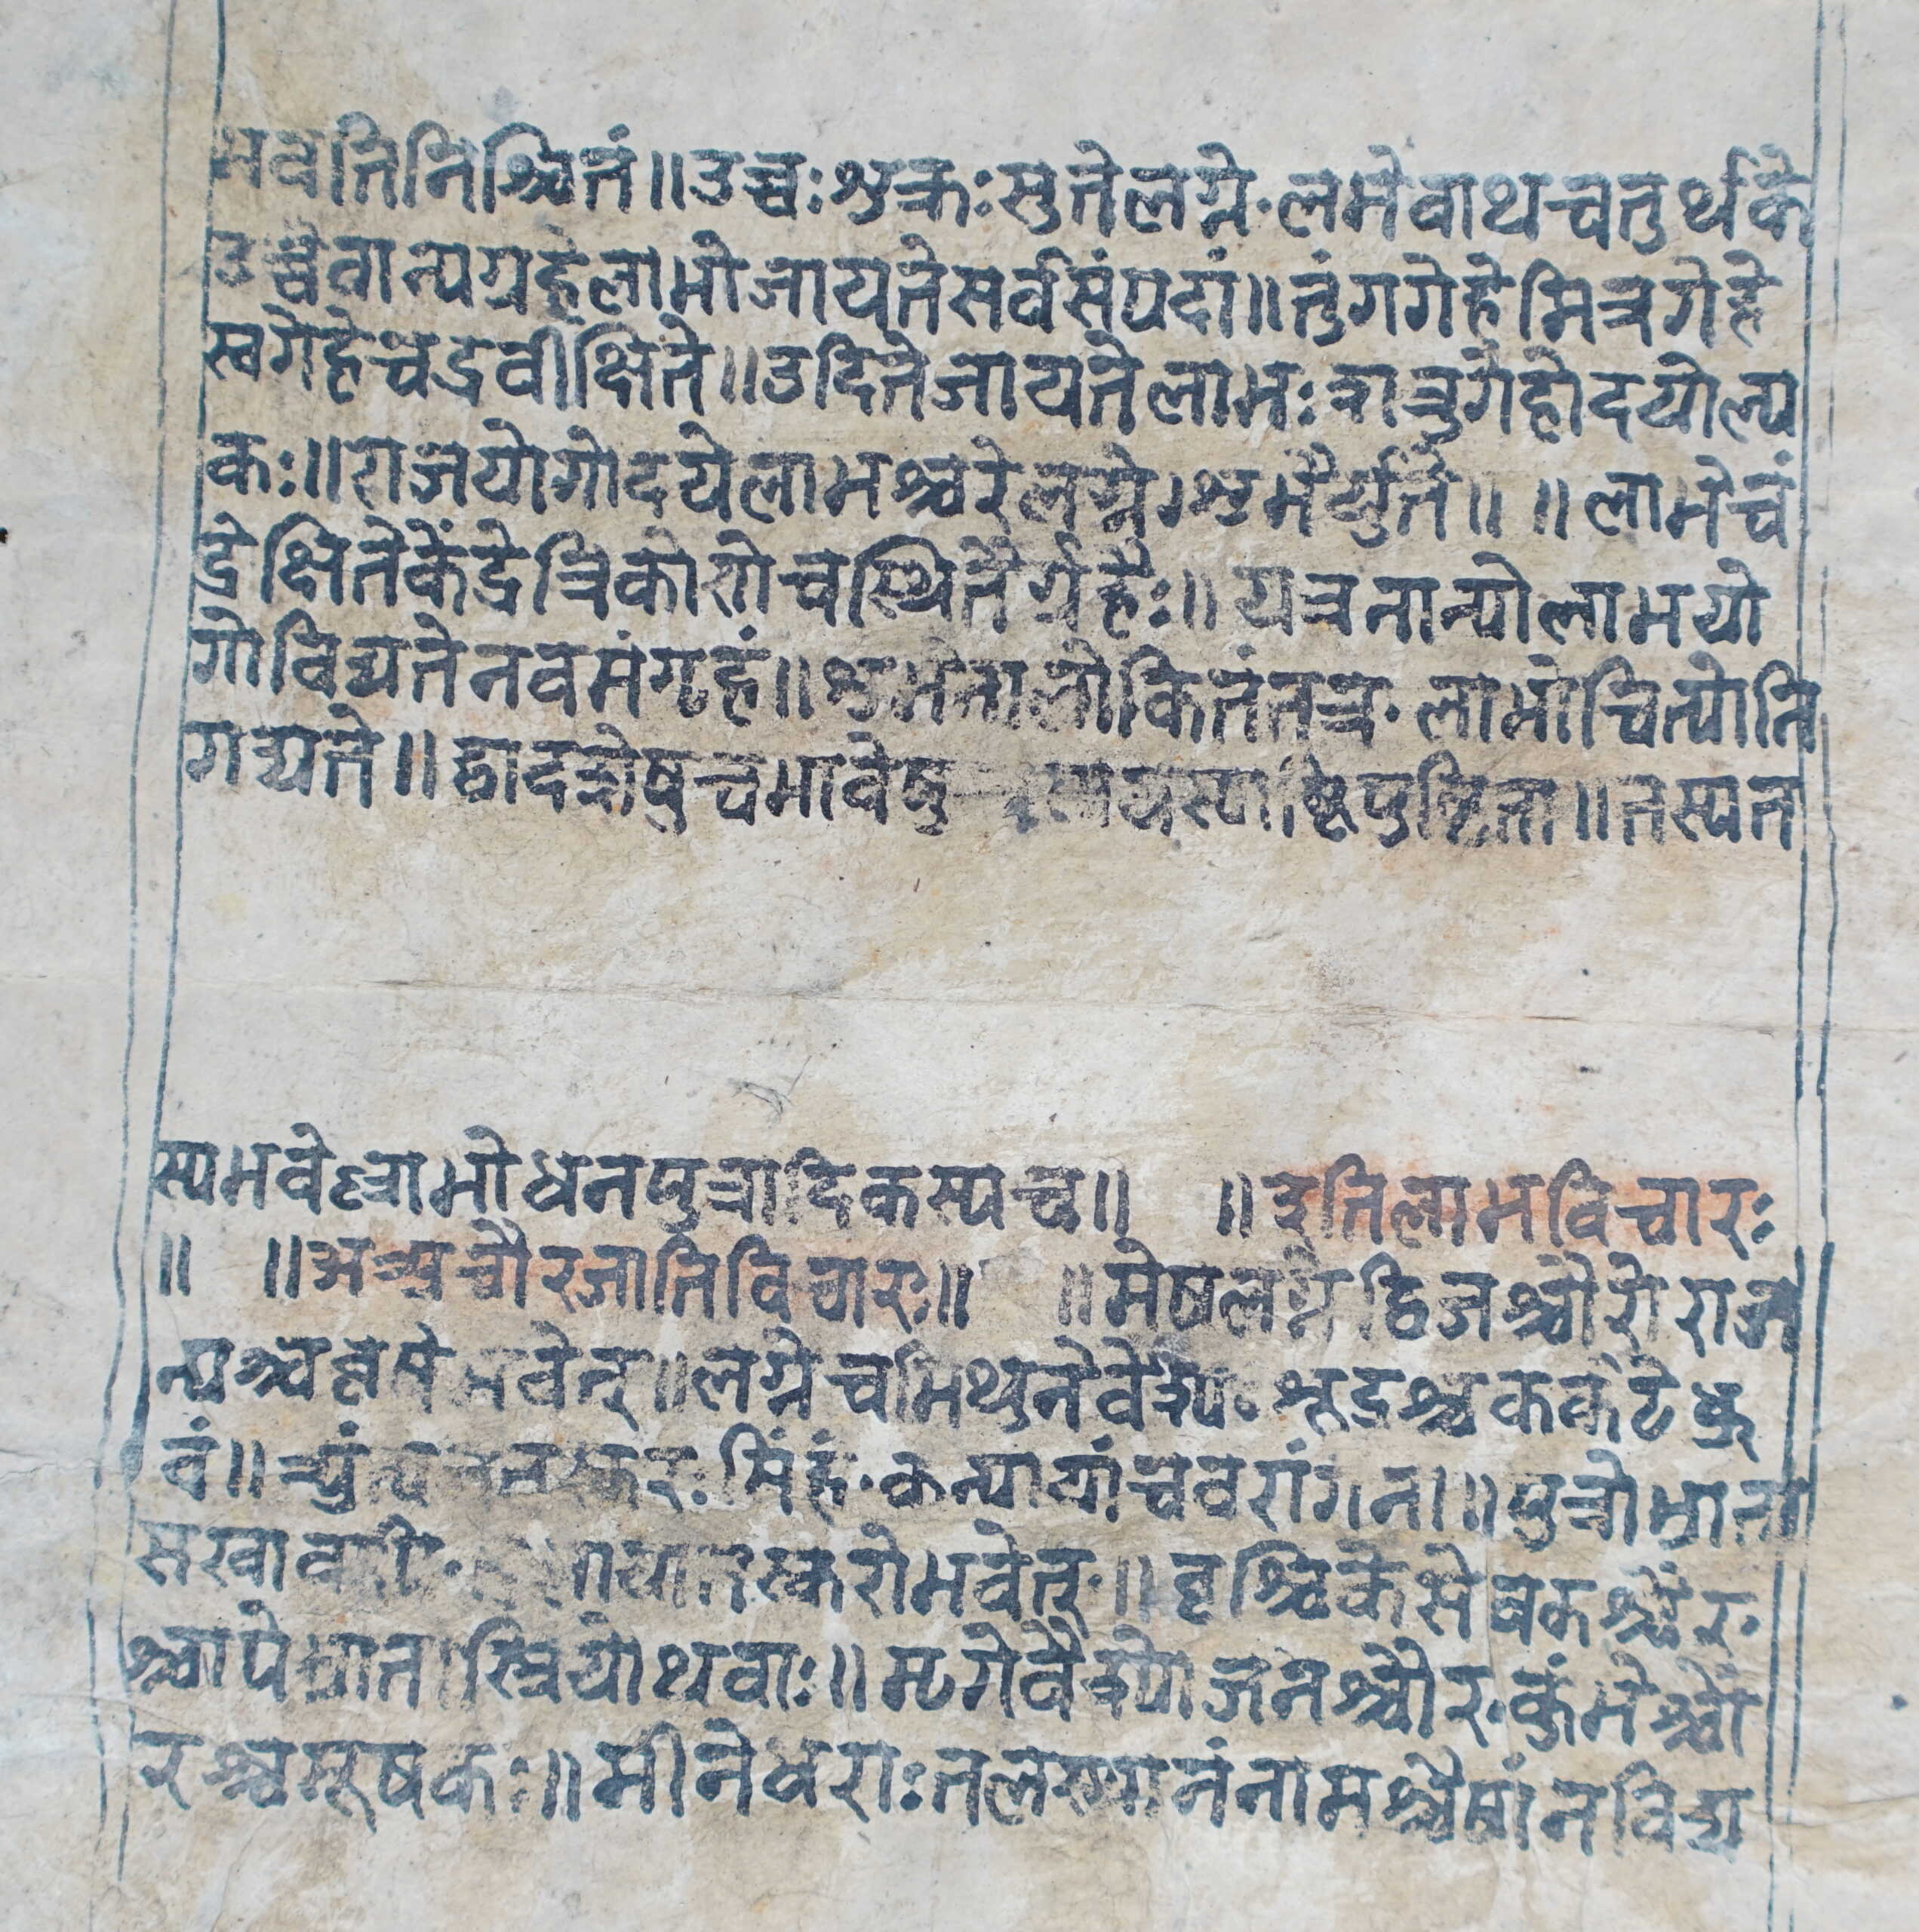 भवतिनिश्चितं॥उच्चःशुक्रःसुतेलग्ने·लभेवाथचतुर्थके
उच्चैवान्यग्रहेलाभोजायतेसर्वसंपदां॥तुंगगेहेमित्रगेहे
स्वगेहेचद्रवीक्षिते॥उदितेजायतेलाभःशत्रुगेहोदयोल्प
कः॥राजयोगोदयेलाभश्चरेलग्ने।शुभैर्युते॥ ॥लाभेचं
द्रेक्षितेकेंद्रेत्रिकोणेचस्थितैर्ग्रहैः॥यत्रनान्योलाभयो
गोविद्यतेनवमंगृहं॥शुभेनालोकितंतत्र·लाभोचिन्त्योति
गद्यते॥द्वादशेषुचभावेषु
तस्यत
स्यभवेल्लाभोधनपुत्रादिकस्यच॥ ॥इतिलाभविचारः
॥ ॥अथचौरजातिविचारः॥ ॥मेषलग्नेद्विजश्चौरोराज
न्यश्चवृषेभवेत्॥लग्नेचमिथुनेवैश्यः शूद्रश्चकर्कटेध्रु
वं॥ सिंहे·कन्यायांचवरांगना॥पुत्रोभ्राता
सखा तस्करोभवेत्·॥वृश्चिकेसेवकश्चौर·
श्चापे स्त्रियोथवाः॥मृगेवैश्योजनश्चौर·कुंभेश्चौ
रश्चमूषकः॥मीनेधराःतल नंनामश्चैषांनविद्य